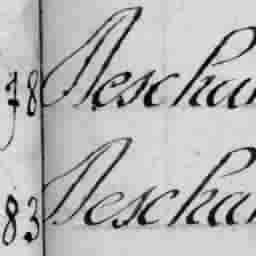 78 Deschar
83 Deschar